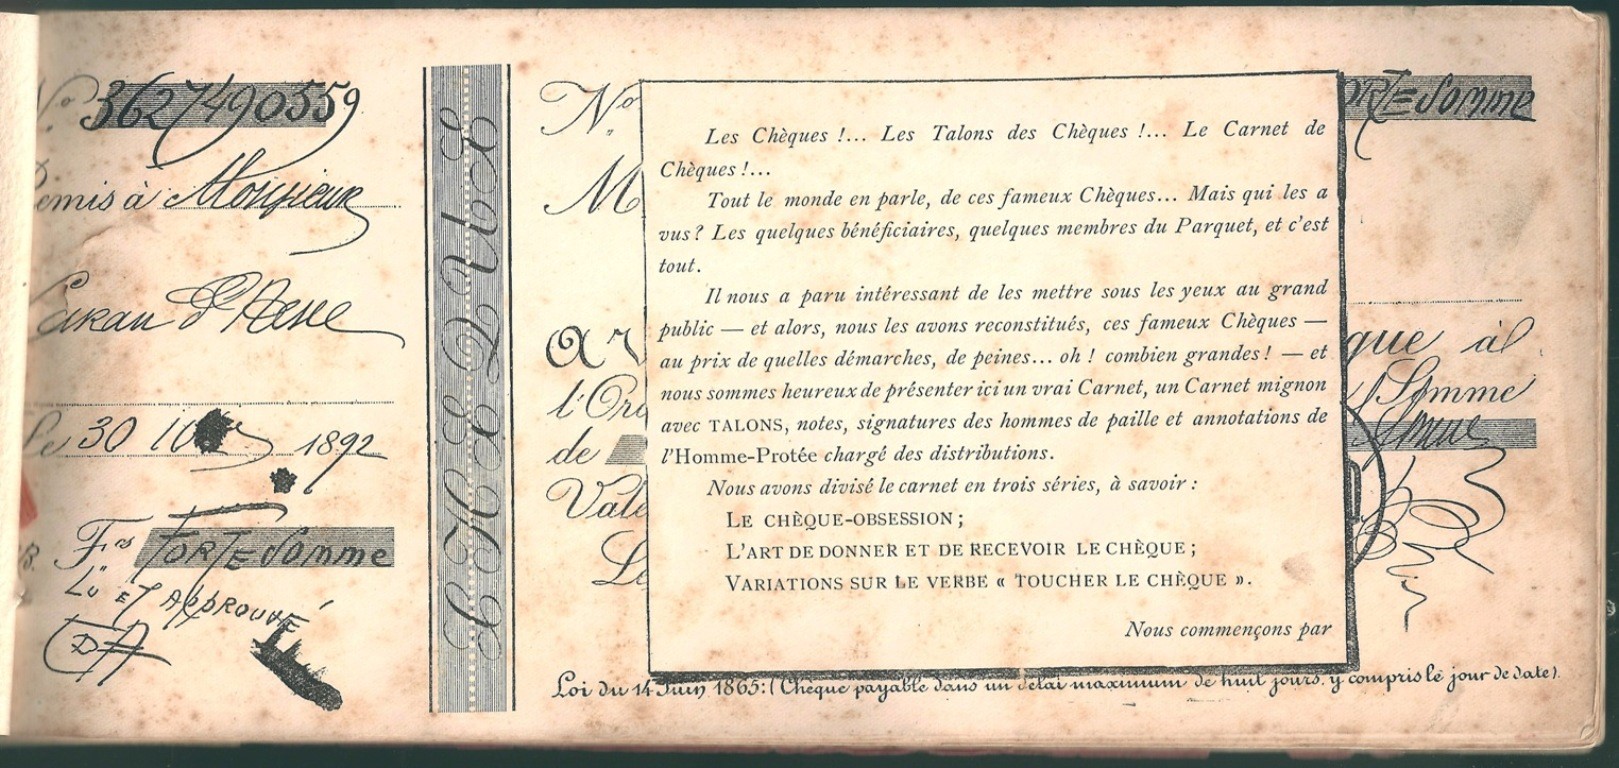 No 3627490559
Remis à Monsieur
Le 30 1892
Frs FORTE Somme
LU ET APPROUVÉ
DA
CHÈQUE
No
M
l'Ord
de
Vale
Le
Les Chèques !... Les Talons des Chèques !... Le Carnet de
Chèques !...
Tout le monde en parle, de ces fameux Chèques... Mais qui les a
vus? Les quelques bénéficiaires, quelques membres du Parquet, et c'est
tout.
Il nous a paru intéressant de les mettre sous les yeux au grand
public — et alors, nous les avons reconstitués, ces fameux Chèques —
au prix de quelles démarches, de peines... oh ! combien grandes! — et
nous sommes heureux de présenter ici un vrai Carnet, un Carnet mignon
avec TALONS, notes, signatures des hommes de paille et annotations de
l'Homme-Protée chargé des distributions.
Nous avons divisé le carnet en trois séries, à savoir :
LE CHÈQUE-OBSESSION ;
L'ART DE DONNER ET DE RECEVOIR LE CHÈQUE ;
VARIATIONS SUR LE VERBE « TOUCHER LE CHÈQUE ».
Nous commençons par
ORTE Somme
que à l
Somme
Somme
Loi du 14 Juin 1865: (Chèque payable dans un délai maximum de huit jours, y compris le jour de date).